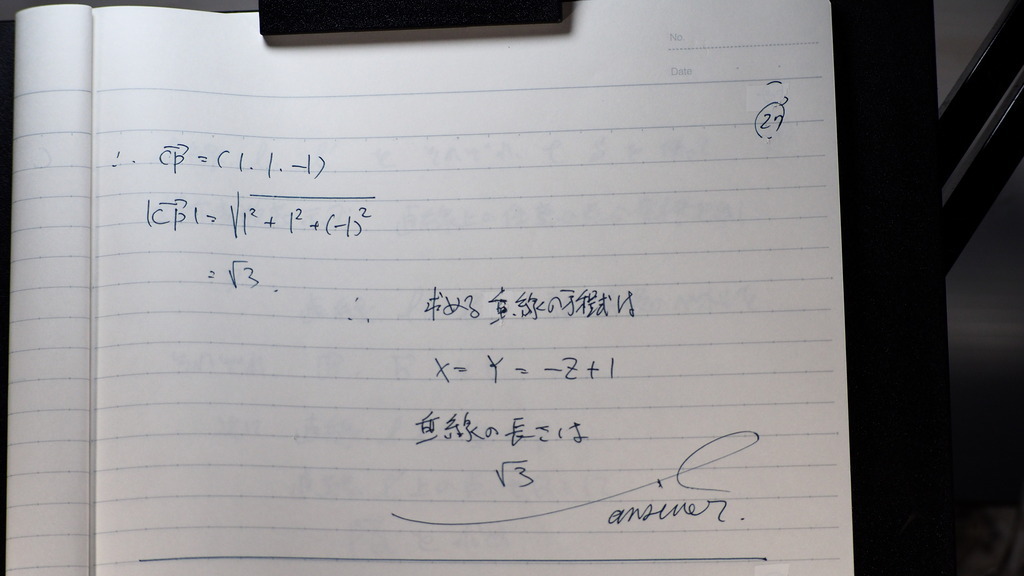 No.
Date
27
∴ CP→ = (1, 1, -1)
|CP→| = √1² + 1² + (-1)²
= √3.
∴ 求める垂線の方程式は
X = Y = -Z+1
垂線の長さは
√3
answer.